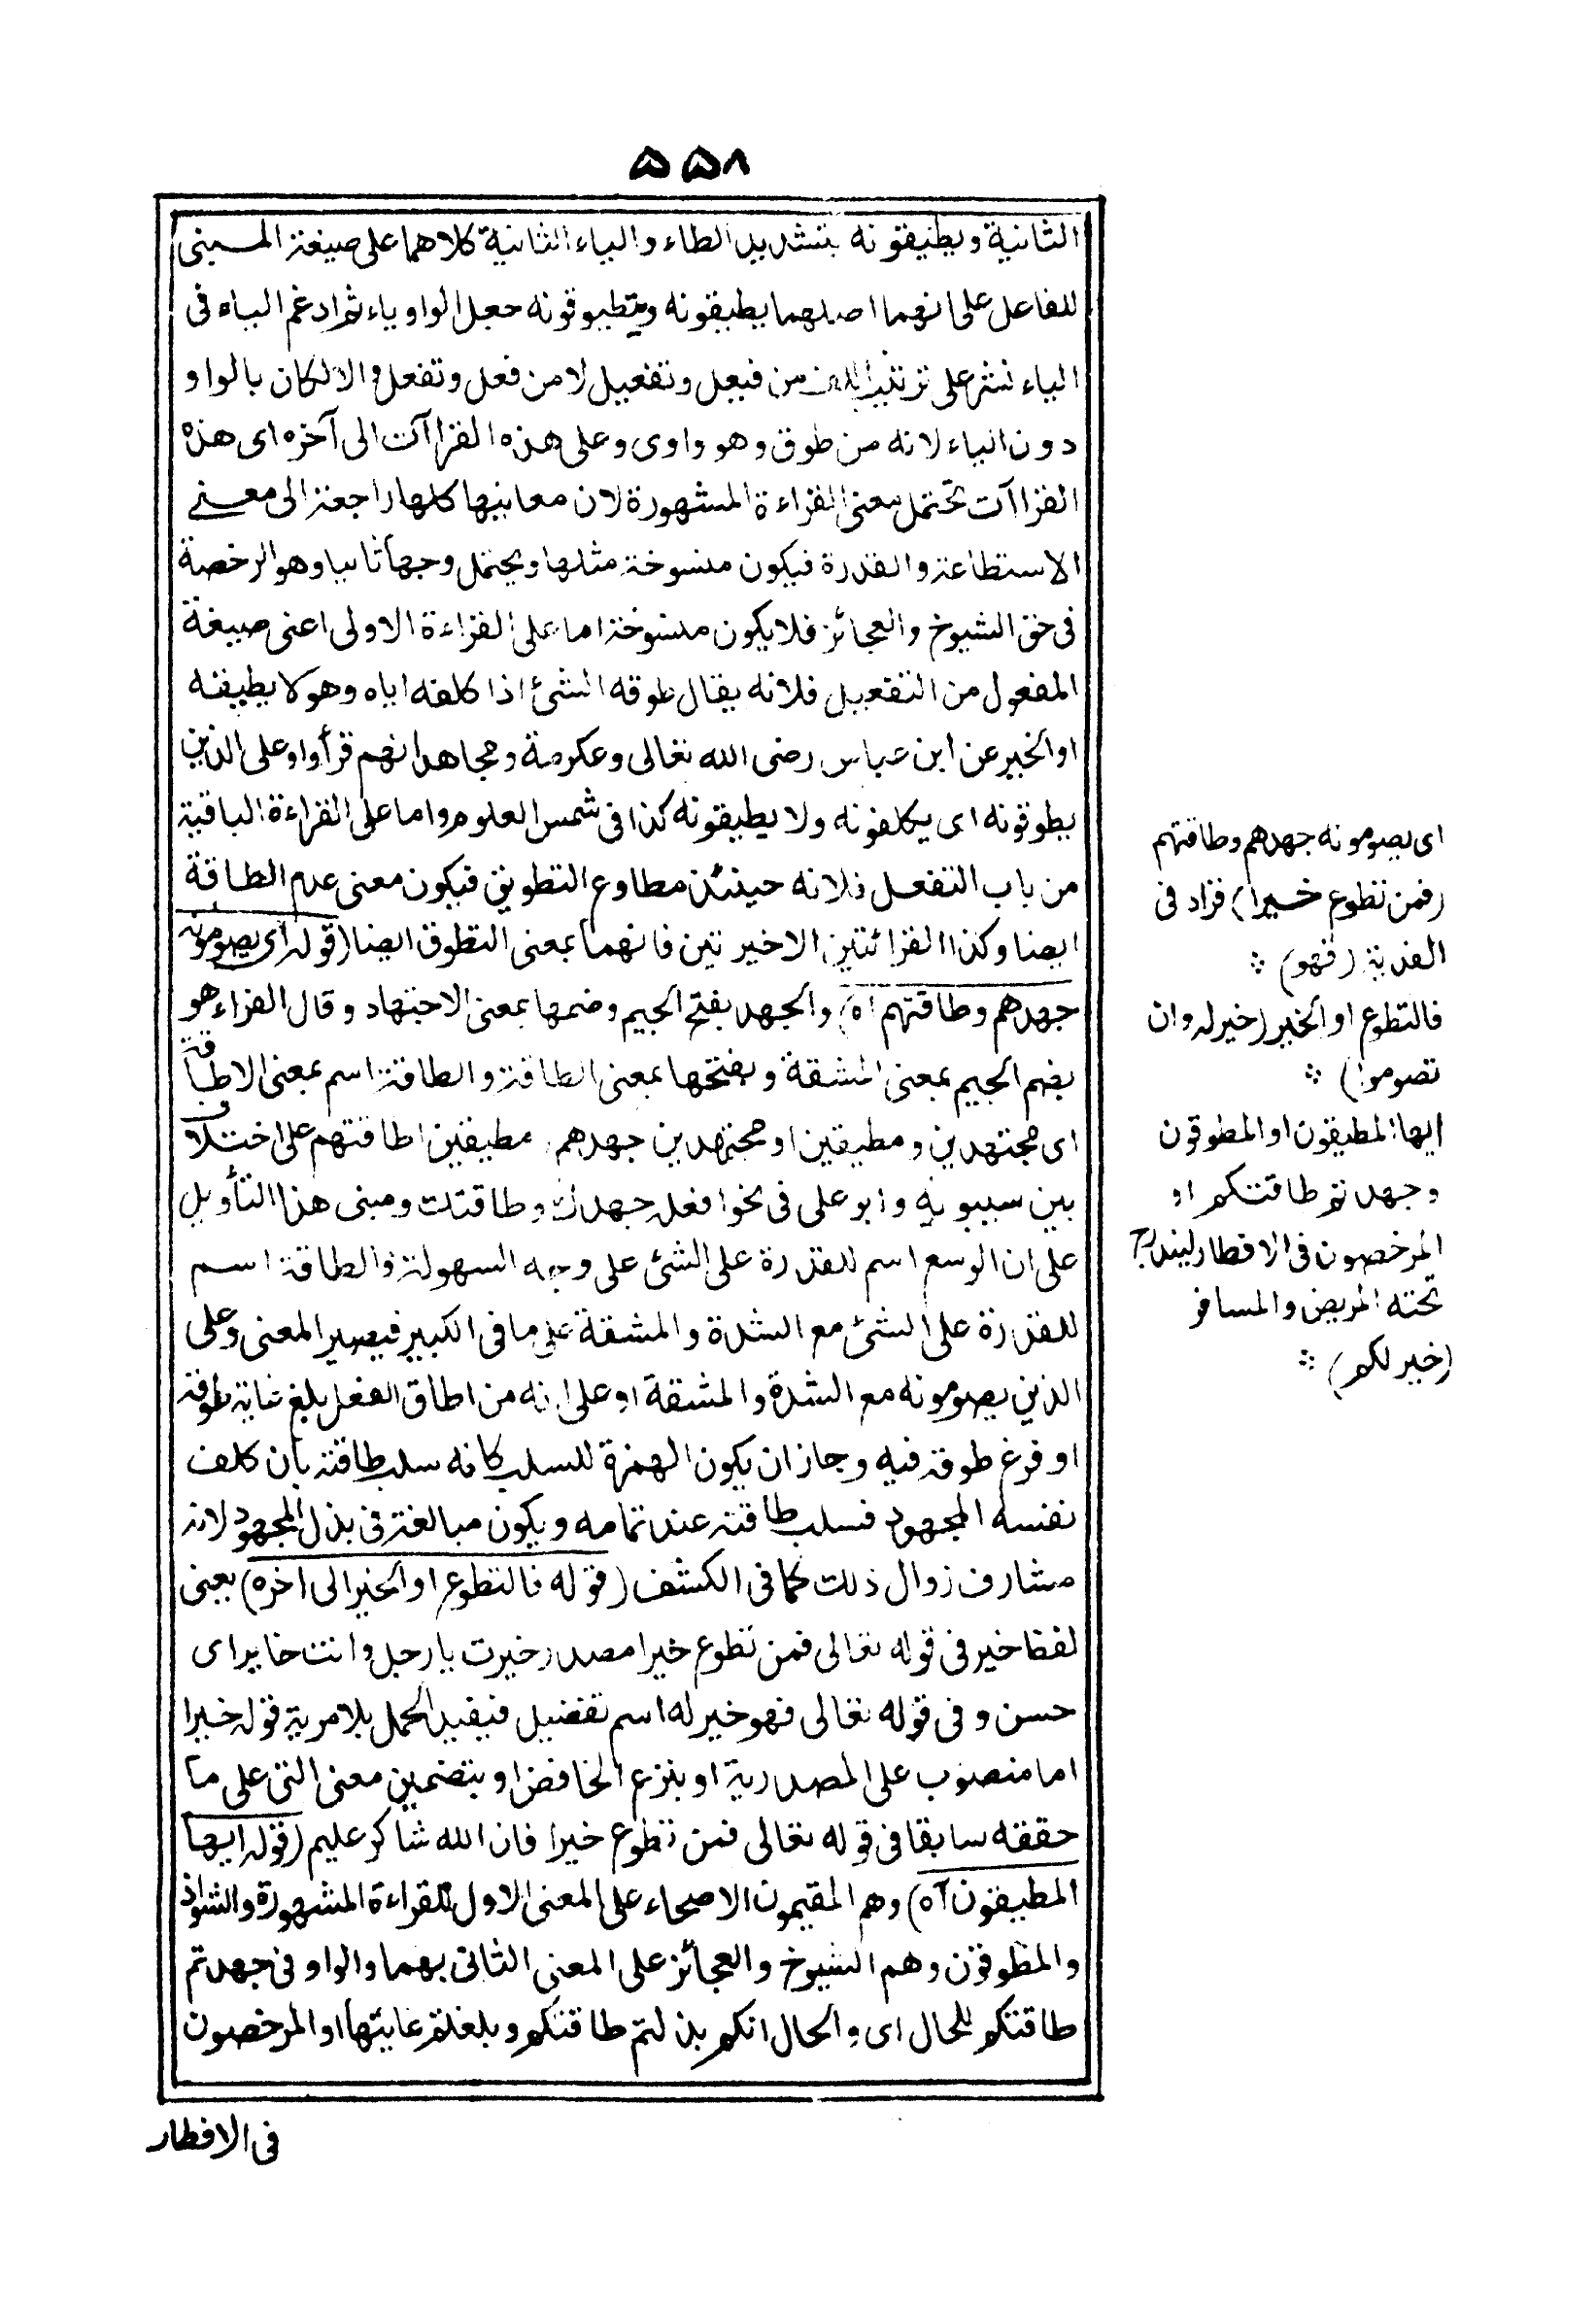 ۵۵۸
الثانية ويطيقونه بتشديد الطاء والياء الثانية كلاهما على صيغة المبنى
للفاعل على انهما اصلهما يطيوقونه ويتطيوقونه جعل الواو ياء ثم ادغم الياء فى
الياء نشر على ترتيب اللف من فيعل وتفعيل لا من فعل وتفعل والا لكان بالواو
دون الياء لانه من طوق وهو واوى وعلى هذه القراآت الى آخره اى هذه
القراآت تحتمل معنى القراءة المشهورة لان معانيها كلها راجعة الى معنى
الاستطاعة والقدرة فيكون منسوخة مثلها ويحتمل وجها ثانيا وهو الرخصة
فى حق الشيوخ والعجائز فلا يكون منسوخة اما على القراءة الاولى اعنى صيغة
المفعول من التفعيل فلانه يقال طوقه الشئ اذا كلفه اياه وهو لا يطيقه
او الخبر عن ابن عباس رضى الله تعالى وعكرمة ومجاهد انهم قرأوا وعلى الذين
يطوقونه اى يكلفونه ولا يطيقونه كذا فى شمس العلوم واما على القراءة الباقية
من باب التفعل فلانه حينئذ مطاوع التطويق فيكون معنى عدم الطاقة
ايضا وكذا القرائتين الاخيرتين فانهما بمعنى التطوق ايضا (قوله اى يصومونه
جهدهم وطاقتهم اه) والجهد بفتح الجيم وضمها بمعنى الاجتهاد وقال الفراء هو
بضم الجيم بمعنى المشقة وبفتحها بمعنى الطاقة والطاقة اسم بمعنى الاطاقة
اى مجتهدين ومطيقين او مجتهدين جهدهم مطيقين اطاقتهم على اختلاف
بين سيبويه وابو على فى نحو افعله جهدك وطاقتك ومبنى هذا التأويل
على ان الوسع اسم للقدرة على الشئ على وجه السهولة والطاقة اسم
للقدرة على الشئ مع الشدة والمشقة على ما فى الكبير فيصير المعنى وعلى
الذين يصومونه مع الشدة والمشقة او على انه من اطاق الفعل بلغ غاية طوقه
او فرغ طوقه فيه وجاز ان يكون الهمزة للسلب كانه سلب طاقته بان كلف
نفسه المجهود فسلب طاقته عند تمامه ويكون مبالغة فى بذل المجهود لانه
مشارف زوال ذلك كما فى الكشف (قوله فالتطوع او الخير الى اخره) يعنى
لفظ خير فى قوله تعالى فمن تطوع خيرا مصدر خيرت يا رجل وانت خاير اى
حسن وفى قوله تعالى فهو خير له اسم تفضيل فيفيد الحمل بلا مرية قوله خيرا
اما منصوب على المصدرية او بنزع الخافض او بتضمين معنى اتى على ما
حققه سابقا فى قوله تعالى فمن تطوع خيرا فان الله شاكر عليم (قوله ايها
المطيقون آه) وهم المقيمون الاصحاء على المعنى الاول للقراءة المشهورة والشواذ
والمطوقون وهم الشيوخ والعجائز على المعنى الثانى بهما والواو فى جهدتم
طاقتكم للحال اى والحال انكم بذلتم طاقتكم وبلغتم غايتها او المرخصون
فى الافطار
اى يصومونه جهدهم وطاقتهم
(فمن تطوع خيرا) فزاد فى
الفدية (فهو) ؞
فالتطوع او الخير (خير له وان
تصوموا) ؞
ايها المطيقون او المطوقون
وجهدتم طاقتكم او
المرخصون فى الافطار ليندرج
تحته المريض والمسافر
(خير لكم) ؞